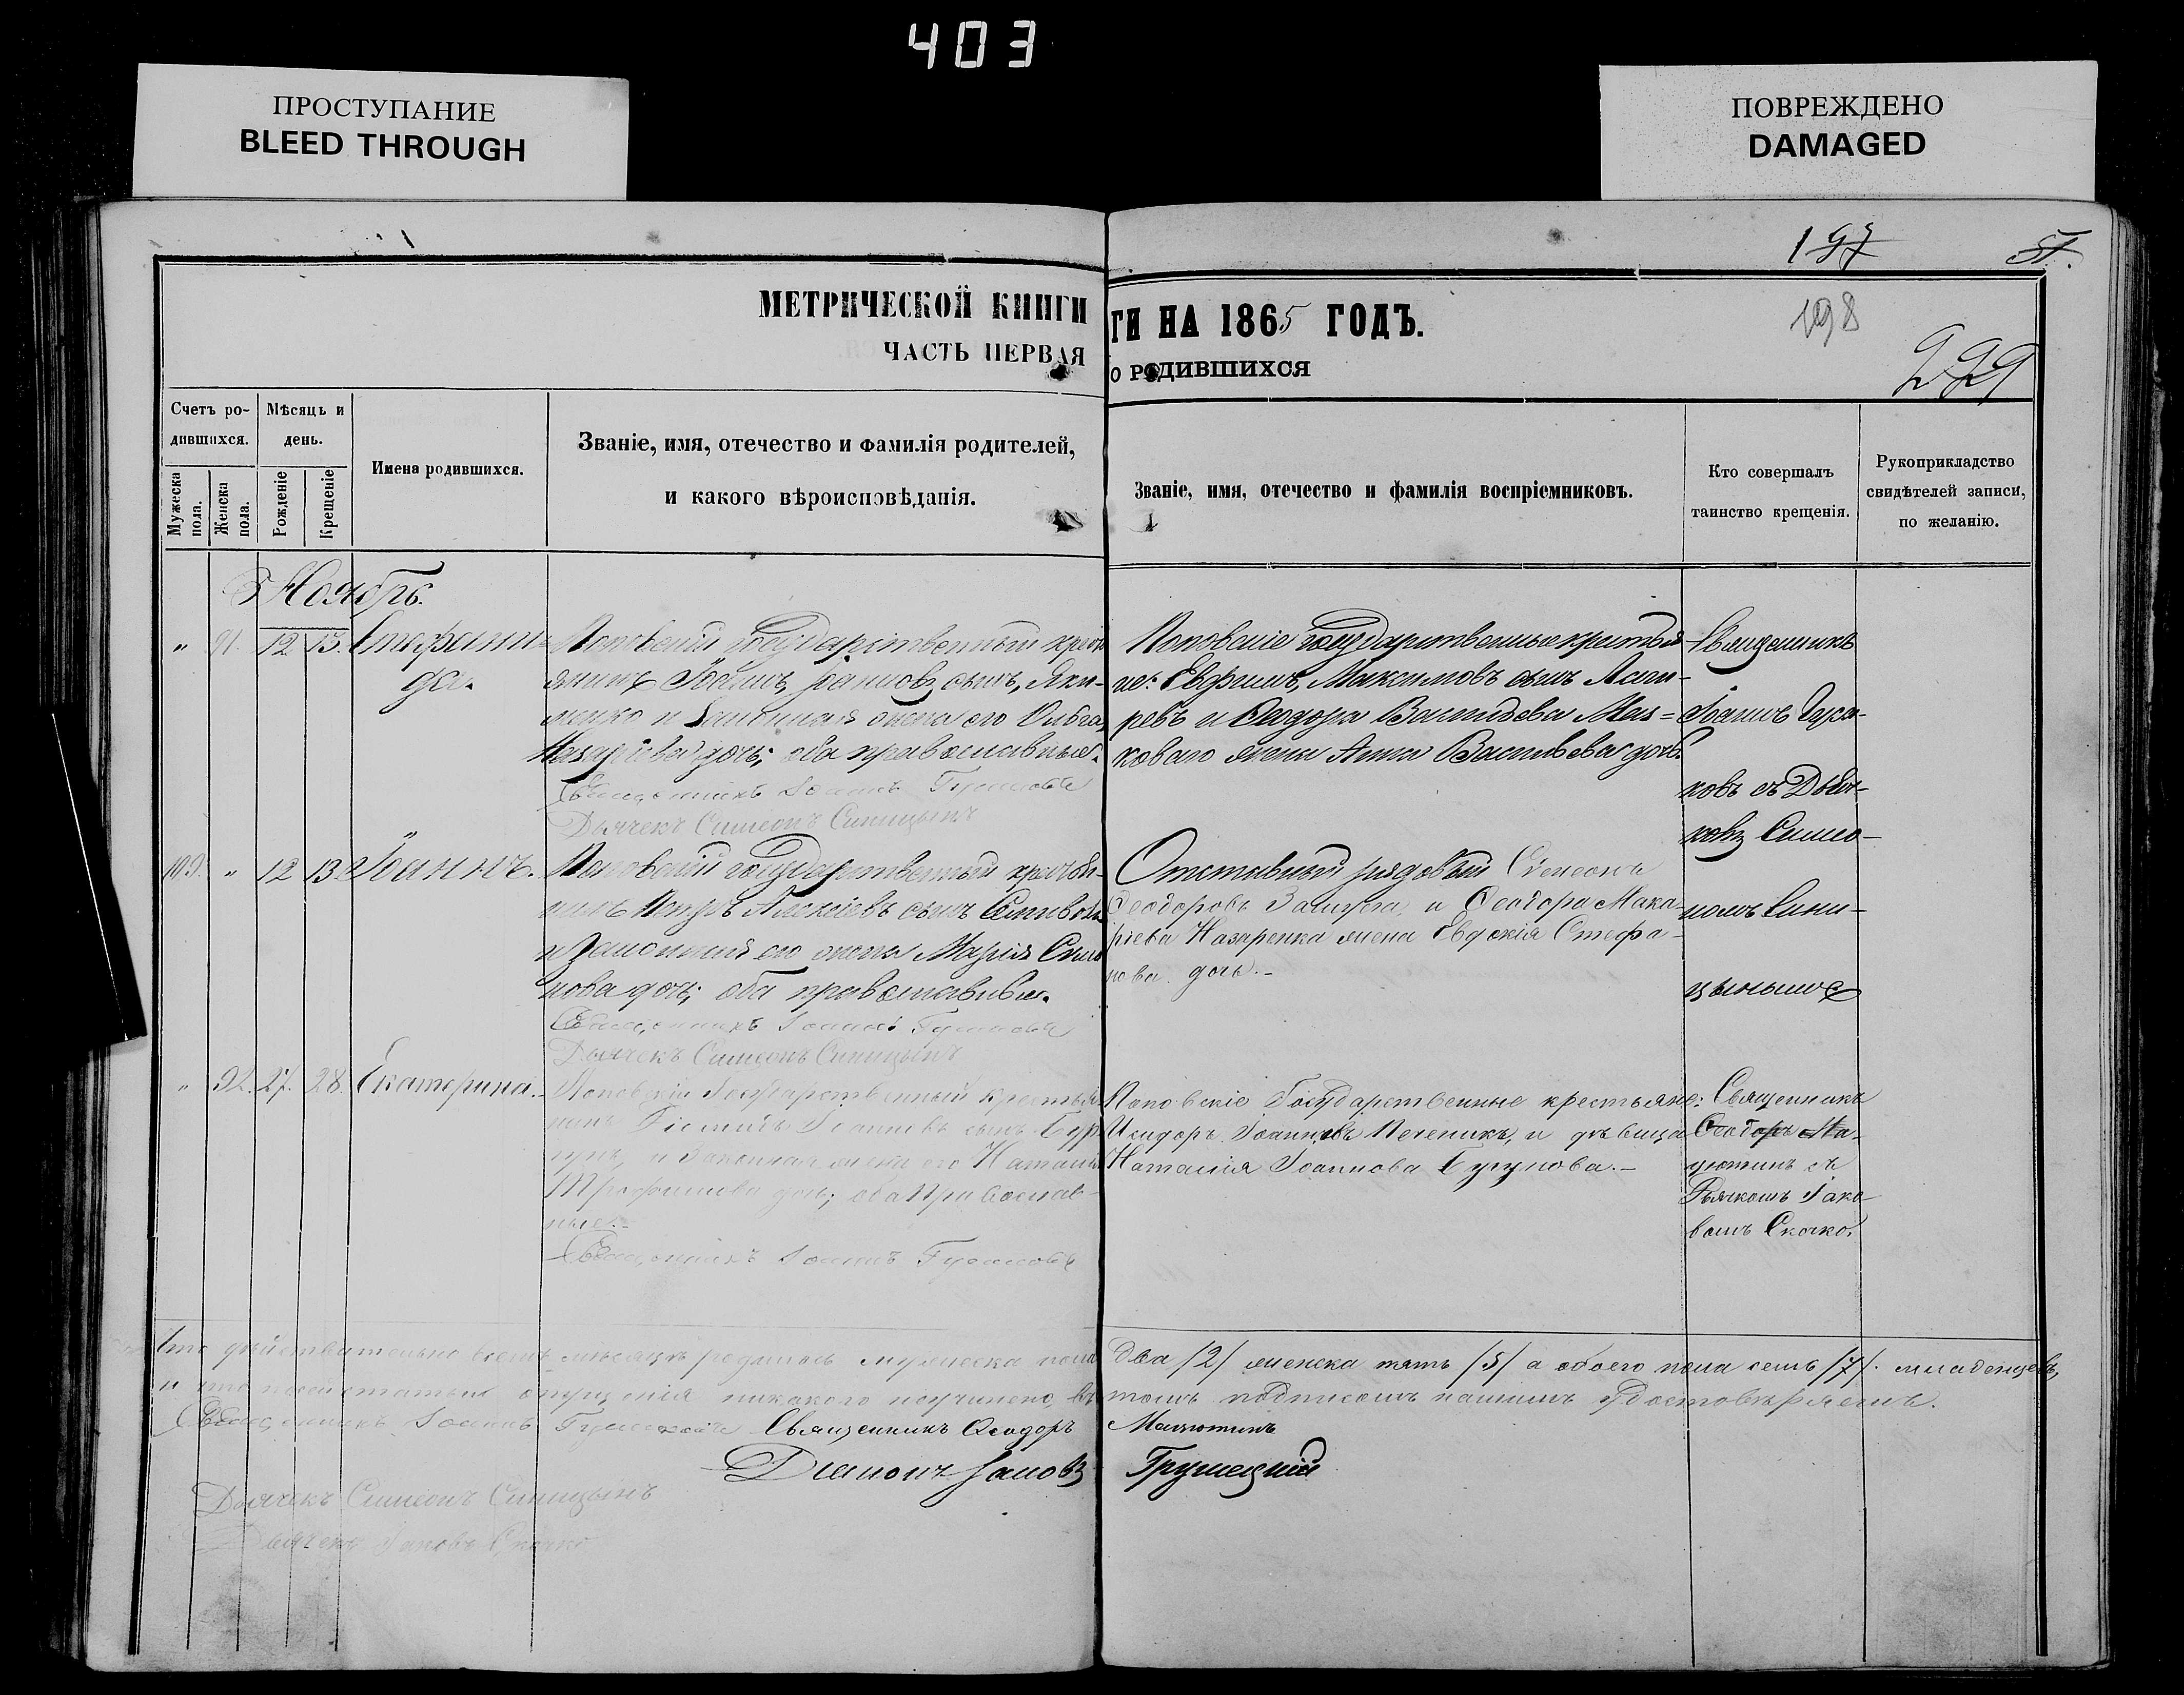 403
ПРОСТУПАНИЕ
BLEED THROUGH
ПОВРЕЖДЕНО
DAMAGED
197
51.
МЕТРИЧЕСКОЙ КНИГИ
ГИ НА 1865 ГОДЪ.
198
229
ЧАСТЬ ПЕРВАЯ
О РОДИВШИХСЯ
Счетъ ро-
дившихся.
Мужеска
пола.
Женска
пола.
Мѣсяцъ и
день.
Рожденіе
Крещеніе
Имена родившихся.
Званіе, имя, отечество и фамилія родителей,
и какого вѣроисповѣданія.
Званіе, имя, отечество и фамилія воспріемниковъ.
Кто совершалъ
таинство крещенія.
Рукоприкладство
свидѣтелей записи,
по желанію.
Ноябрь.
" 91. 12 13.
Поповскій государственный кресть
янинъ Іоаннъ Іоанновъ сынъ, Яки-
менко и законная жена его Ольга
дочь; оба православные.
Священникъ Іоаннъ
Дьячекъ Симеонъ Синицынъ
Поповскіе государственные крестья
не: Евфимъ, Максимовъ сынъ
ревъ и Ѳеодора Василіева Мас=
коваго жена Анна Василіева дочь.
Священникъ
Іоаннъ
ковъ съ Дьяч-
комъ Симео-
номъ Сини-
цынымъ
103. " 12 13 Іоаннъ.
Поповскій государственный крестья-
нинъ Петръ Алексіевъ сынъ
и законная его жена Марія Симо
нова дочь; оба православные.
Священникъ Іоаннъ
Дьячекъ Симеонъ Синицынъ
Отставный рядовый Симеонъ
Ѳеодоровъ и Ѳеодора Мака-
ріева Назаренка жена Евдокія Стефа-
нова дочь.-
" 92. 27. 28. Екатерина.
Поповскій Государственный крестья
нинъ Іоанновъ сынъ
и законная жена его Наталія
Трофимова дочь; оба Православ-
ные.-
Священникъ Іоаннъ
Поповскіе Государственные крестьяне:
Исидоръ Іоанновъ Печеникъ, и дѣвица
Наталія Іоаннова Бугунова.-
Священникъ
Ѳеодоръ Ма-
лютинъ съ
Дьячкомъ Іако
вомъ Скочко.
Что дѣйствительно въ семъ мѣсяцѣ родилось мужеска пола два /2/ женска пять /5/ а обоего пола семь /7/. младенцевъ,
и что по сей статьѣ опущенія никакого не учинено, въ томъ подписомъ нашимъ удостовѣряемъ.
Священникъ Іоаннъ Священникъ Ѳеодоръ Малютинъ
Діаконъ Іаковъ Грушецкій
Дьячекъ Симеонъ Синицынъ
Дьячекъ Іаковъ Скочко